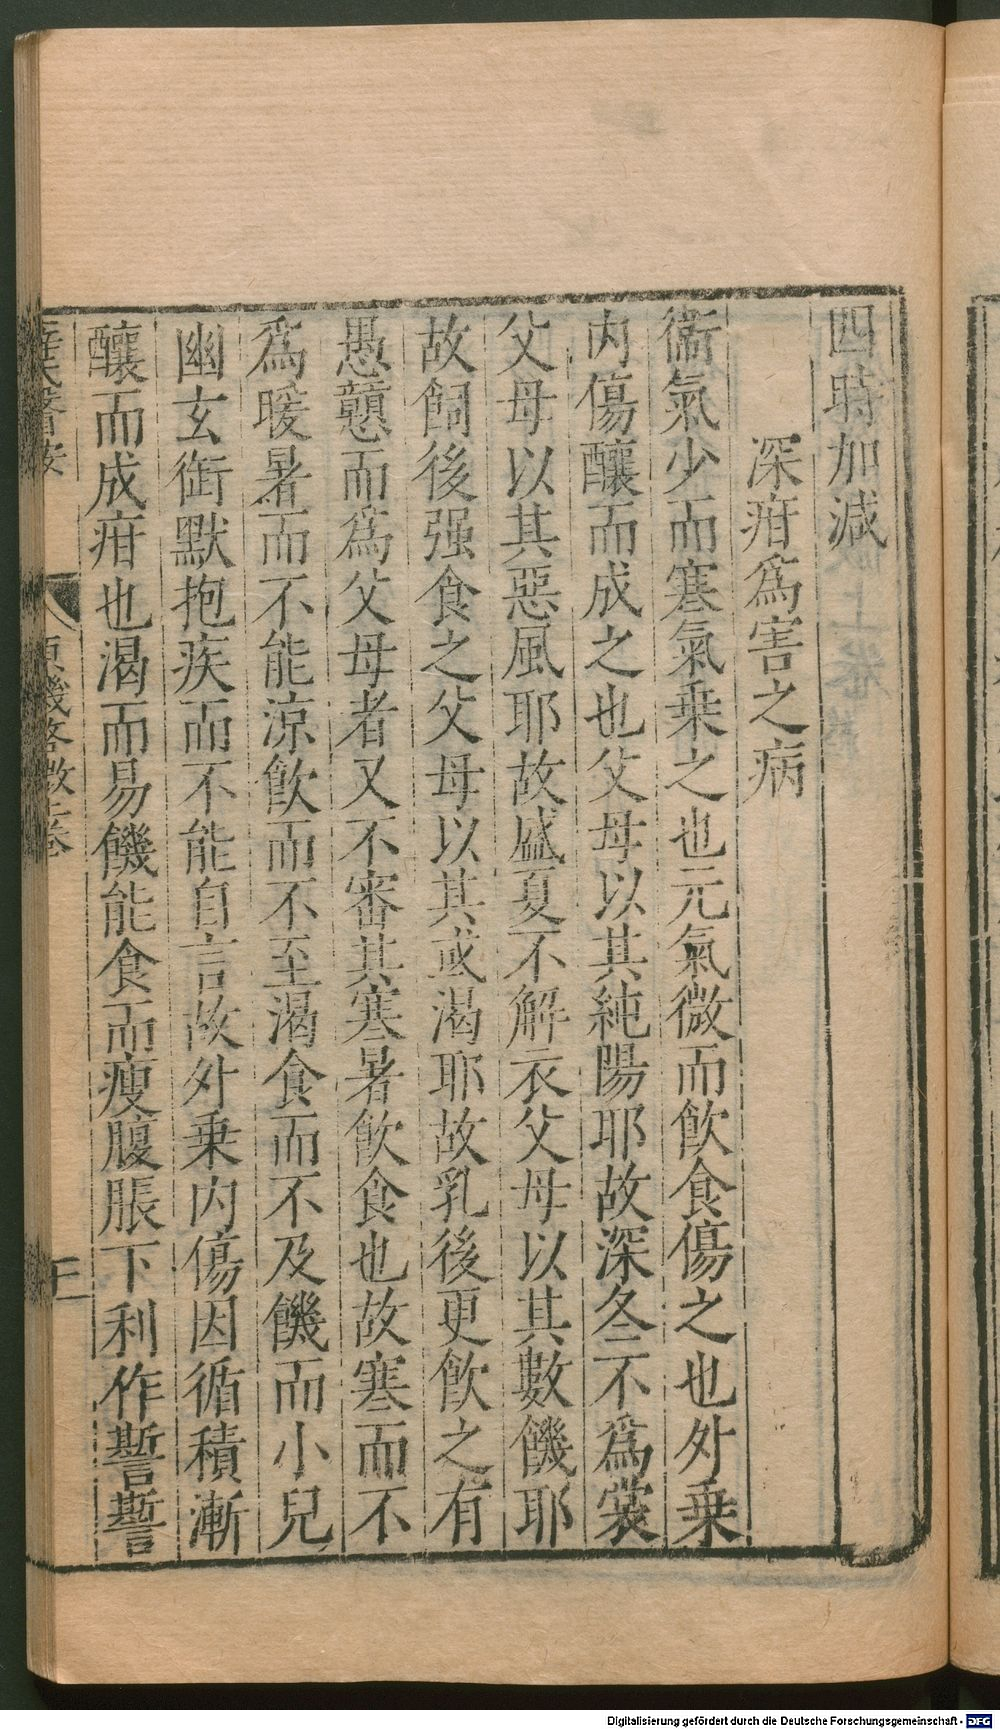 四時加減
深疳為害之病
衞氣少而寒氣乗之也元氣微而飲食傷之也外乗
内傷釀而成之也父母以其純陽耶故深冬不為裳
父母以其惡風耶故盛夏不解衣父母以其數饑耶
故飼後强食之父母以其或渴耶故乳後更飲之有
愚戇而為父母者又不審其寒暑飲食也故寒而不
為暖暑而不能涼飲而不至渴食而不及饑而小兒
幽玄銜默抱疾而不能自言故外乗内傷因循積漸
釀而成疳也渴而易饑能食而瘦腹脹下利作㽄㽄
Digitalisierung gefördert durch die Deutsche Forschungsgemeinschaft - DFG